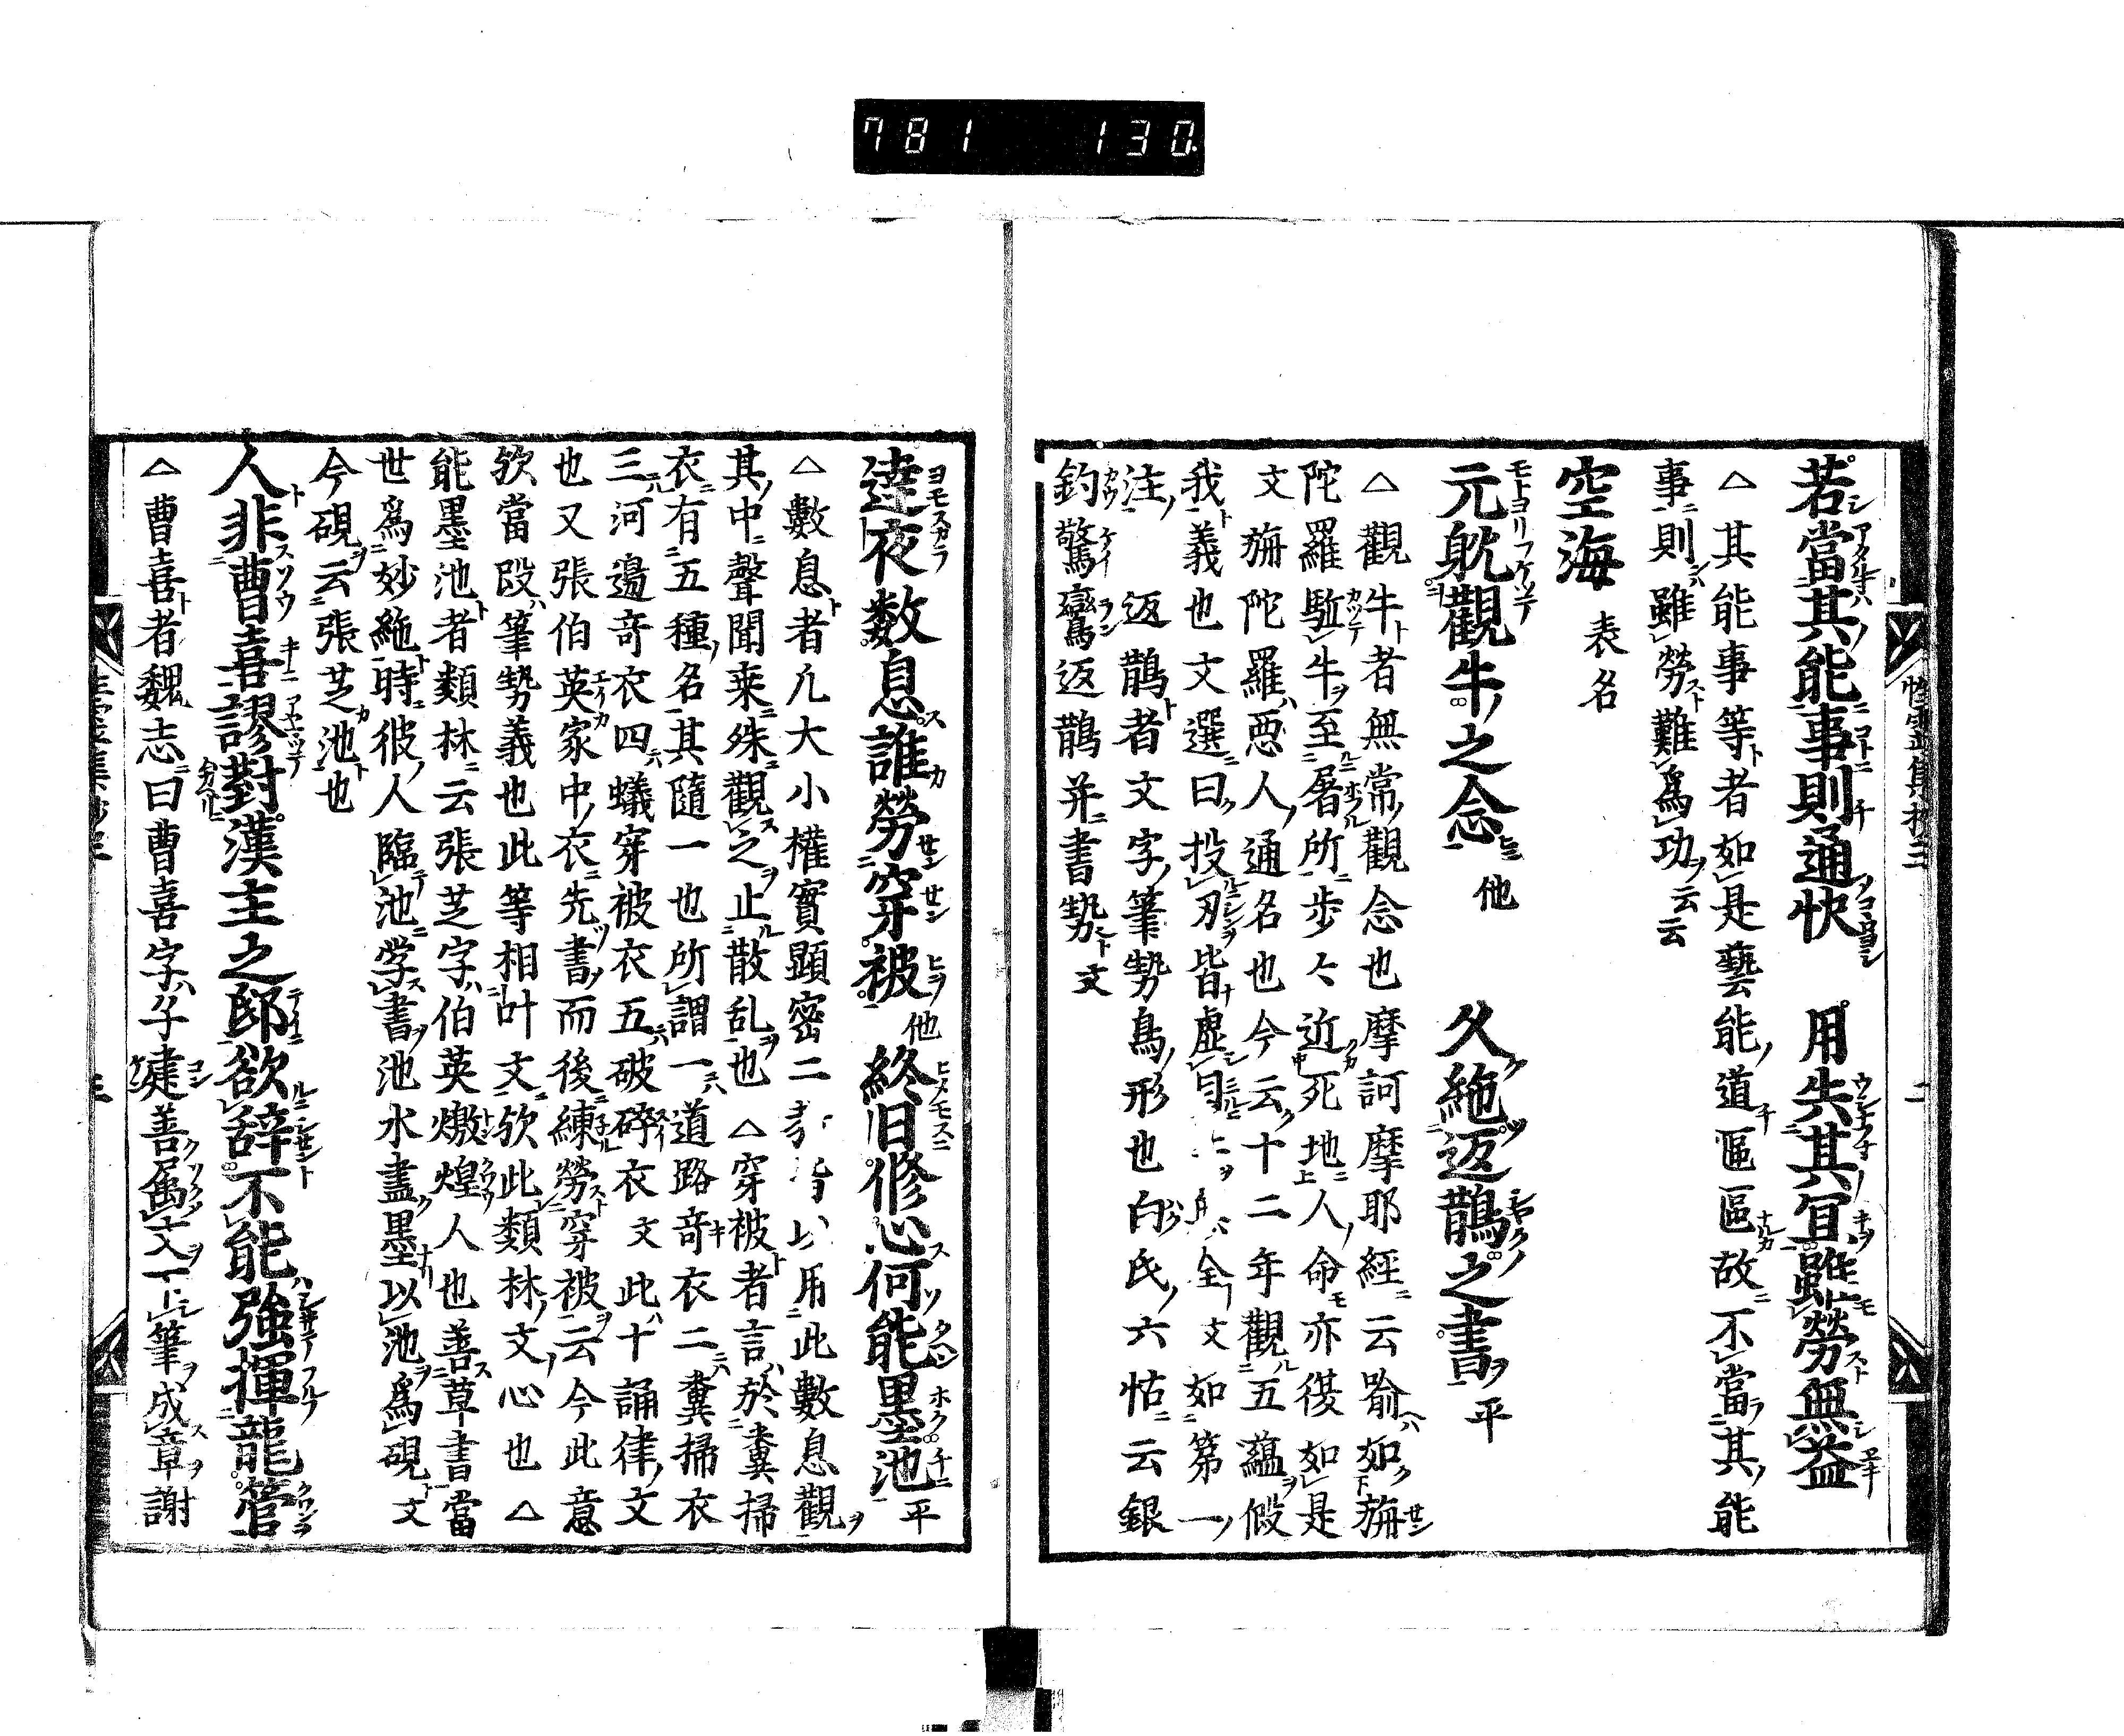 781 130
若當其能事則通快 用失其宜雖勞無益
△其能事等者如是藝能道區區故不當其能
事則雖勞難爲功云云
空海 表名
元躭觀牛之念 他 久絶返鵲之書 平
△觀牛者無常觀念也摩訶摩耶經云喻如旃
陀羅駈牛至屠所歩々近死地人命亦復如是
文旃陀羅惡人通名也今云十二年觀五蘊假
我義也文選曰投刃皆虛目 全文如第一
注返鵲者文字筆勢鳥形也白氏六帖云銀
鈎驚鸞返鵲并書勢文
達夜数息誰勞穿被 他 終日修心何能墨池 平
△數息者凢大小權實顯密二 用此數息觀
其中聲聞乘殊觀之止散乱也△穿被者言於糞掃
衣有五種名其隨一也所謂一道路奇衣二糞掃衣
三河邊奇衣四蟻穿被衣五破碎衣文此十誦律文
也又張伯英家中衣先書而後練勞穿被云今此意
欤當段筆勢義也此等相叶文欤此類林文心也△
能墨池者類林云張芝字伯英燉煌人也善草書當
世爲妙絶時彼人臨池学書池水盡墨以池爲硯文
今硯云張芝池也
人非曹喜謬對漢主之邸欲辞不能強揮龍管
△曹喜者魏志曰曹喜字子建善属文下筆成章謝